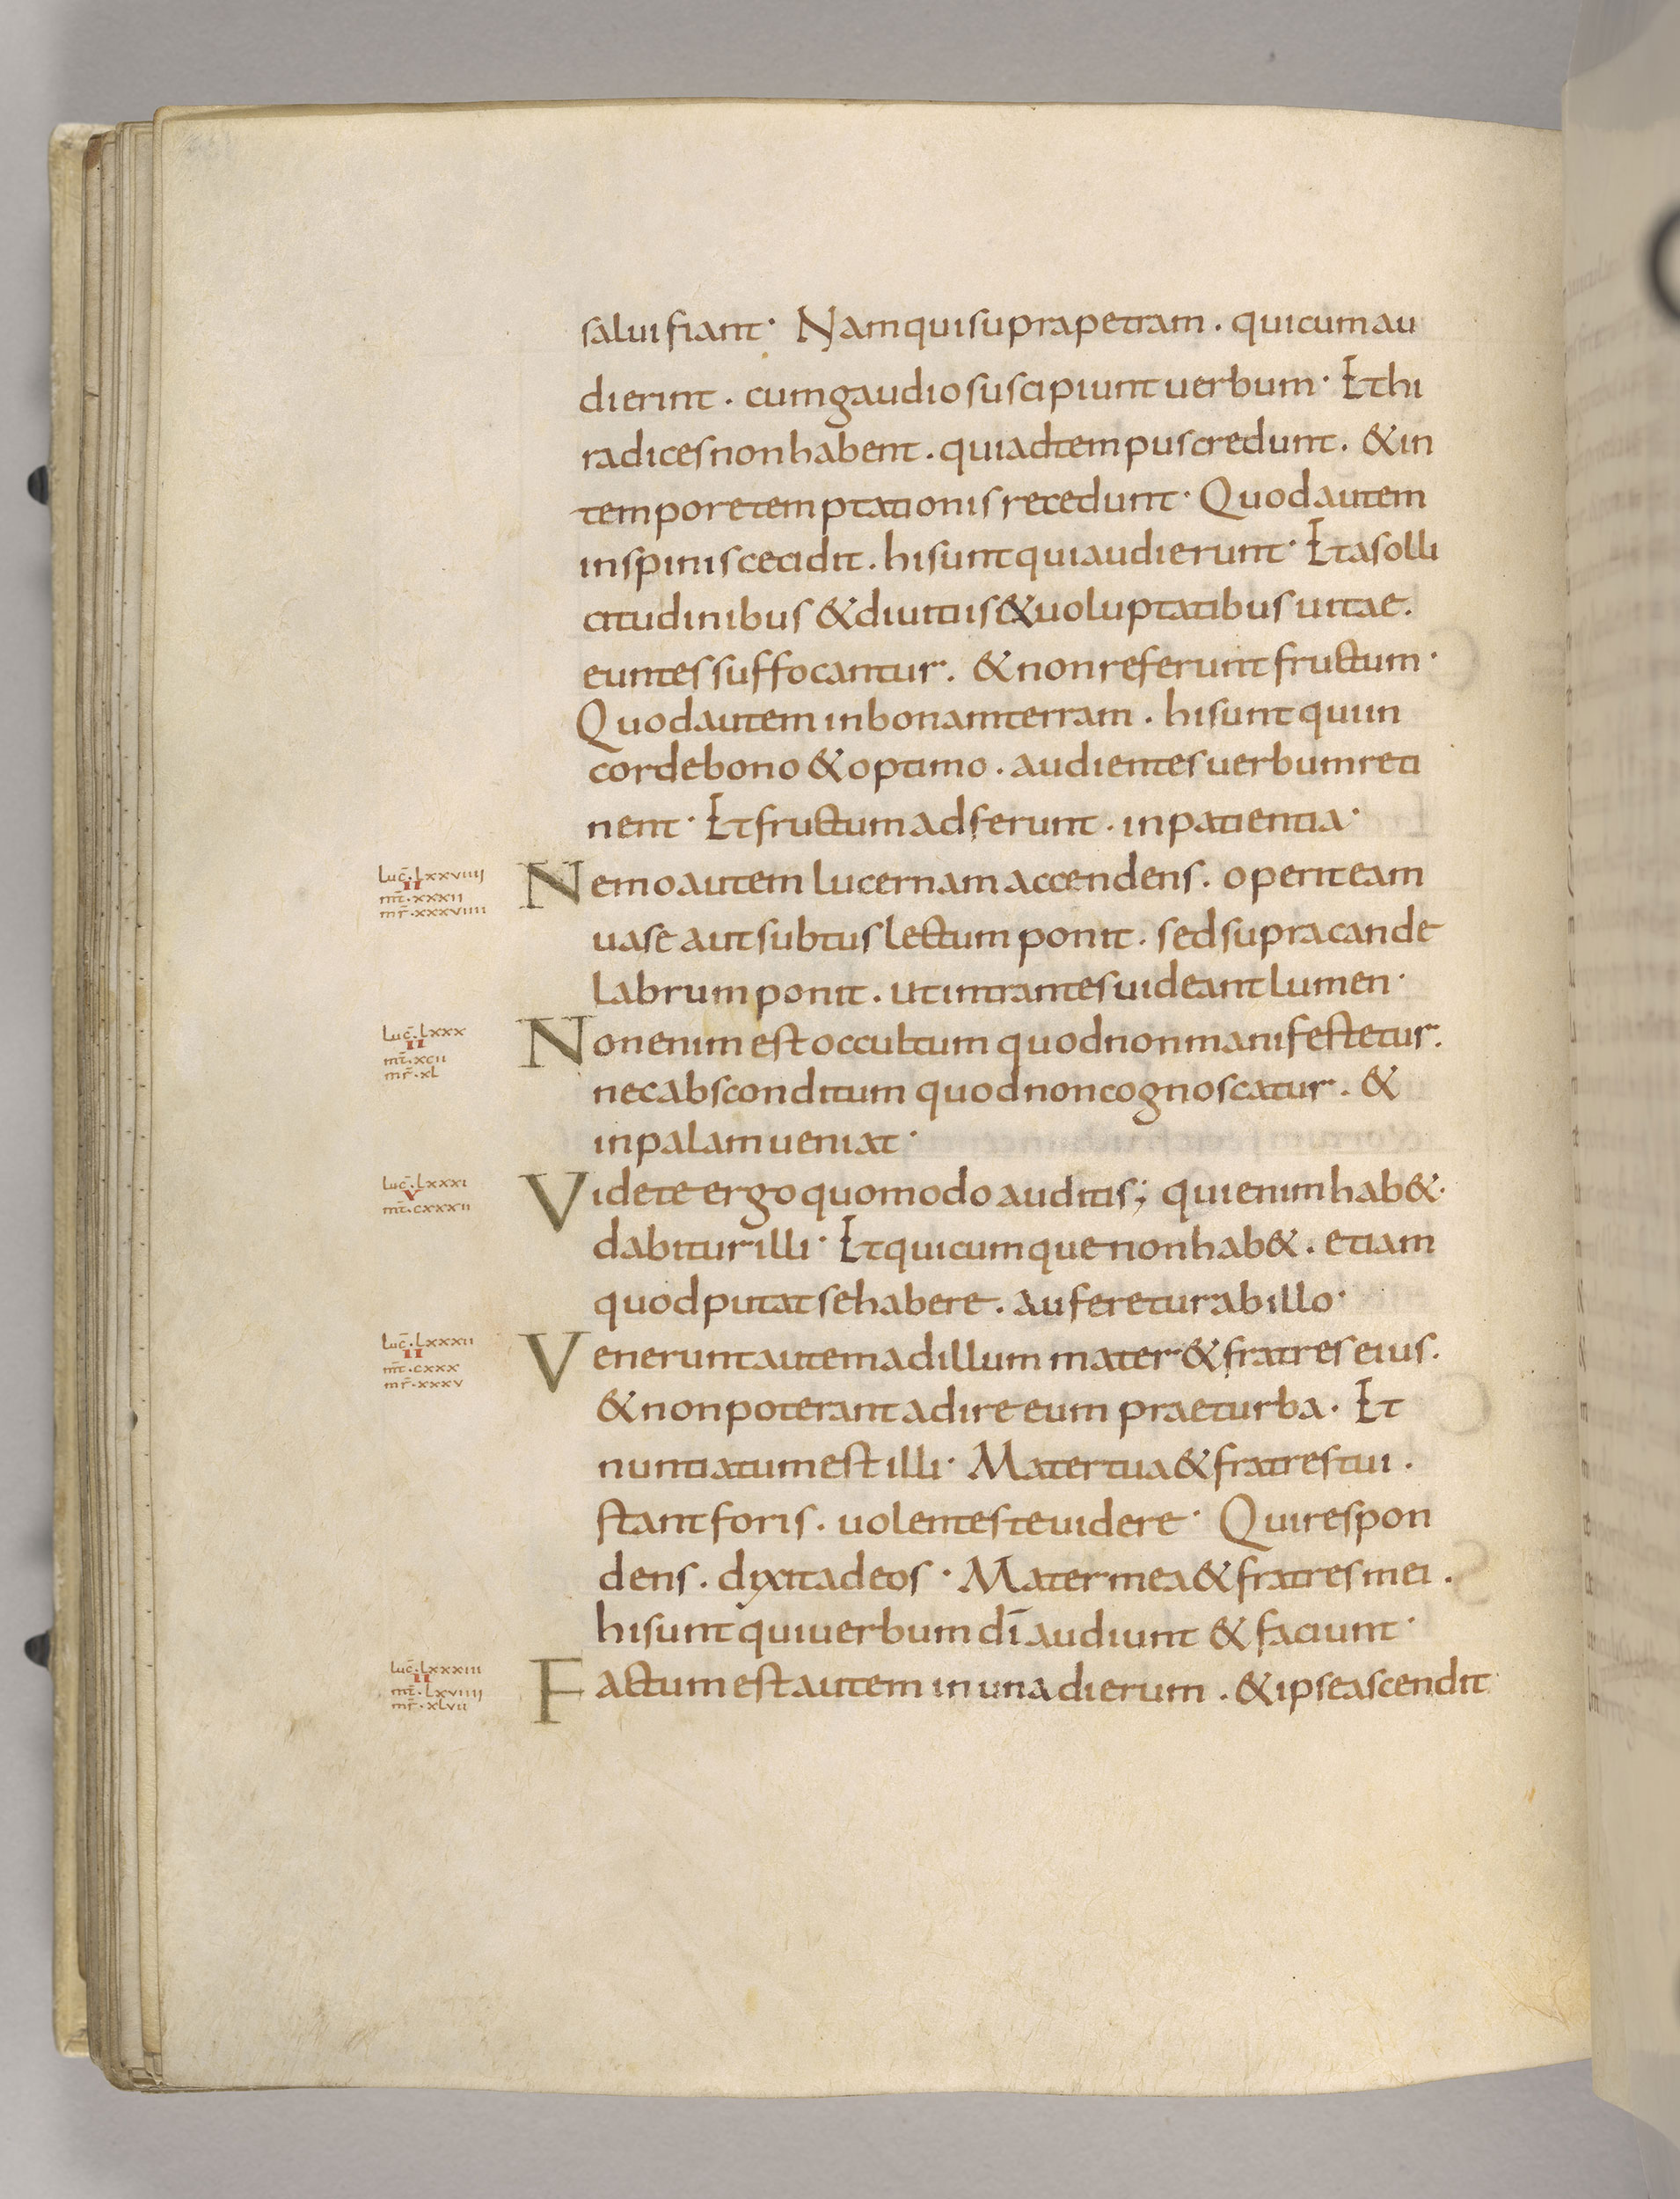 salui fiant· Nam qui supra petram . qui cum au
dierint . cum gaudio suscipiunt uerbum· Et hi
radices non habent . qui ad tempus credunt . & in
tempore temptationis recedunt· Quod autem
in spinis cecidit . hi sunt qui audierunt· Et a solli
citudinibus & diuitiis & uoluptatibus uitae .
euntes suffocantur . & non referunt fructum·
Quod autem in bonam terram . hi sunt qui in
corde bono & optimo . audientes uerbum reti
nent· Et fructum adferunt . in patientia·
Luc̄·Lxxviiii
II
mt̄·xxxii
mr̄·xxxviiii
Nemo autem lucernam accendens . operit eam
uase aut subtus lectum ponit . sed supra cande
labrum ponit . ut intrantes uideant lumen·
Luc̄·Lxxx
II
mt̄·xcii
mr̄·xL
Non enim est occultum quod non manifestetur .
nec absconditum quod non cognoscatur . &
in palam ueniat·
Luc̄·Lxxxi
V
mt̄·cxxxii
Videte ergo quomodo auditis; qui enim hab&·
dabitur illi· Et quicumque non hab& . etiam
quod putat se habere . auferetur ab illo·
Luc̄·Lxxxii
II
mt̄·cxxx
mr̄·xxxv
Venerunt autem ad illum mater & fratres eius .
& non poterant adire eum prae turba· Et
nuntiatum est illi· Mater tua & fratres tui .
stant foris . uolentes te uidere· Qui respon
dens . dixit ad eos· Mater mea & fratres mei .
hi sunt qui uerbum dī audiunt & faciunt·
Luc̄·Lxxxiii
II
mt̄·Lxviiii
mr̄·xLvii
Factum est autem in una dierum . & ipse ascendit